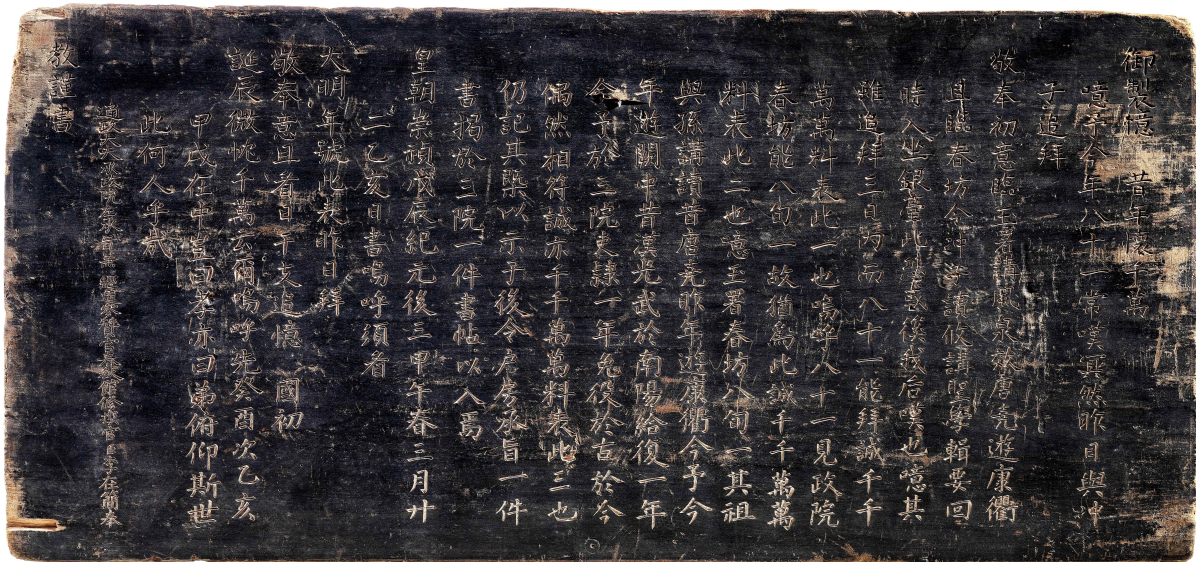 御製憶 昔年懷千萬
噫予今年八十一常嘆冥然昨日與冲
子追拜
敬奉初意臨玉署講風泉效唐堯遊康衢
且臨春坊令冲子讀攸講聖學輯要回
時入坐銀臺此後我后嘆也噫其
雖追拜三日兩而八十一能拜誠千千
萬萬料表此一也嵩年八十一見政院
春坊能八旬一故猶爲此誠千千萬萬
料表此二也意玉署春坊八旬一其祖
與孫講讀昔唐堯昨年遊康衢今予今
年遊闕中昔漢光武於南陽給復一年
今予於三院吏隸一年免役於古於今
偶然相符誠亦千千萬萬料表此三也
仍記其槩以示于後令戶房承旨一件
書揭於三院一件書帖以入焉
皇朝崇禎戊辰紀元後三甲午春三月廿
二乙亥日書嗚呼須看
大明年號此表昨日拜
敬奉意且看日干支追憶 國初
誕辰微忱千萬云爾嗚呼先癸酉次乙亥
甲戌在中豈曰孝乎曰弟俯仰斯世
此何人乎哉
李在簡奉
敎謹書